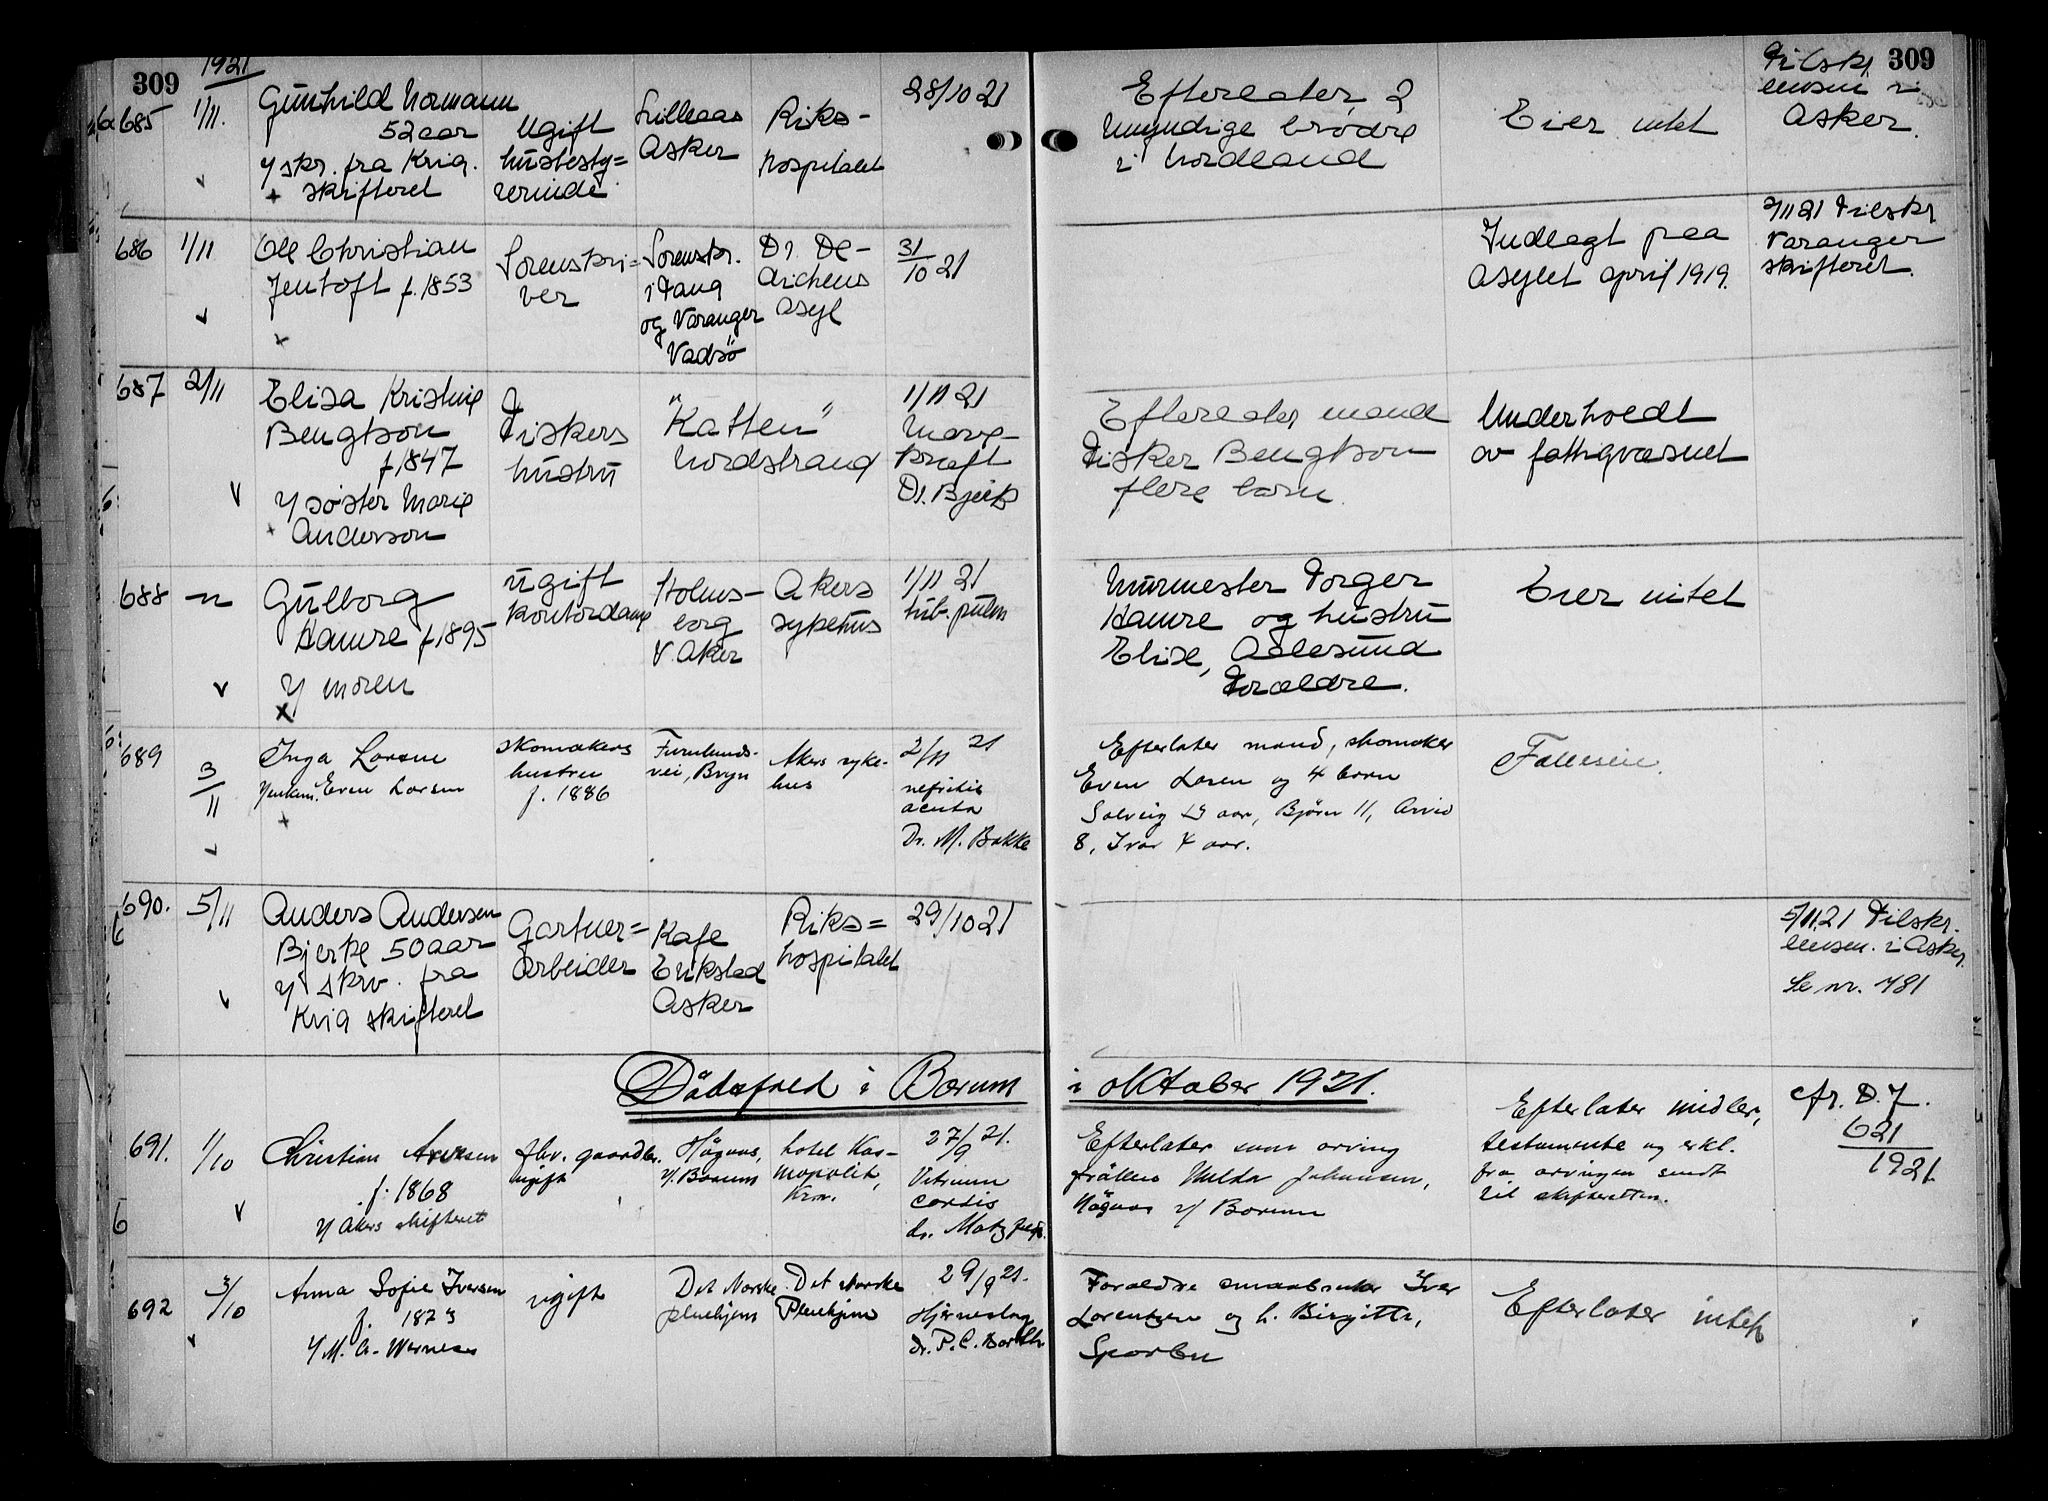 309
1921
309
685
1/11.
Gunhild Normann
52 aar
v/ skr. fra Kria.
skifteret
Ugift
husbesty=
rerinde
Lilleaas
Asker
Riks-
hospitalet
28/10 21
Efterlater 2
umyndige brødre
i Nordland
Eier intet
Tilskr.
lensm i
Asker.
686
1/11
Ole Christian
Jentoft f. 1853
Sorenskri=
ver
Sorenskr.
i Tana
og Varanger
Vadsö
Dr. De-
dichens
asyl
31/10 21
Indlagt paa
asylet april 1919.
2/11 21 Tilskr
Varanger
skifteret.
687
2/11
Elisa Kristine
Bengtson
f 1847
v/ søster Marie
Anderson
Fiskers
hustru
"Katten"
Nordstrand
1/11 21
Mave-
kræft
Dr. Bjerke
Efterlater mand
Fisker Bengtson
flere barn.
Underholdt
av fattigvæsnet
688
Gulborg
Hamre f 1895
v/ moren
ugift
kontordame
Holms-
borg
V. Aker
Akers
sykehus
1/11 21
tub. pulm
Murmester Torger
Hamre og hustru
Elise, Aalesund
Forældre.
Eier intet
689
3/11
Inga Larsen
v/enkem. Even Larsen
skomakers
hustru
f. 1886
Furulunds-
vei, Bryn
Akers syke-
hus
2/11 21
nefritis
acuta
Dr. M. Bakke
Efterlater mand, skomaker
Even Larsen og 4 barn
Solveig 13 aar, Bjørn 11, Arvid
8, Ivar 4 aar.
Fælleseie.
690.
5/11
Anders Andersen
Bjerke 50 aar
v/ skrv. fra
Kria skifteret
Gartner=
arbeider
Kafe
Erikstad
Asker
Riks=
hospitalet
29/10 21
5/11.21 Tilskr.
lensm. i Asker.
Se nr. 781
Dødsfald i Bærum
i oktober 1921.
691.
1/10
Christian Aversen
f. 1868
v/ Akers skifteret
fhv. gaardbr.
ugift
Högnas,
v/ Bærum
hotel Kos-
mopolit,
Kria.
27/9 21.
Vitium
cordis
dr. Motzfeldt.
Efterlater som arving
frøken Hulda Johansen,
Högnas v/ Bærum
Efterlater midler,
testamente og erkl.
fra arvingen sendt
til skifteretten.
cfr. D. J.
621
1921.
692
3/10
Anna Sofie Iversen
f. 1873
v/ M. A. Wernes
ugift
Det Norske
pleiehjem
Det Norske
Pleiehjem
29/9 21.
Hjerneslag
dr. P. C. Barth
Forældre smaabruker Iver
Lorentzen og h. Birgitte,
Sparbu
Efterlater intet